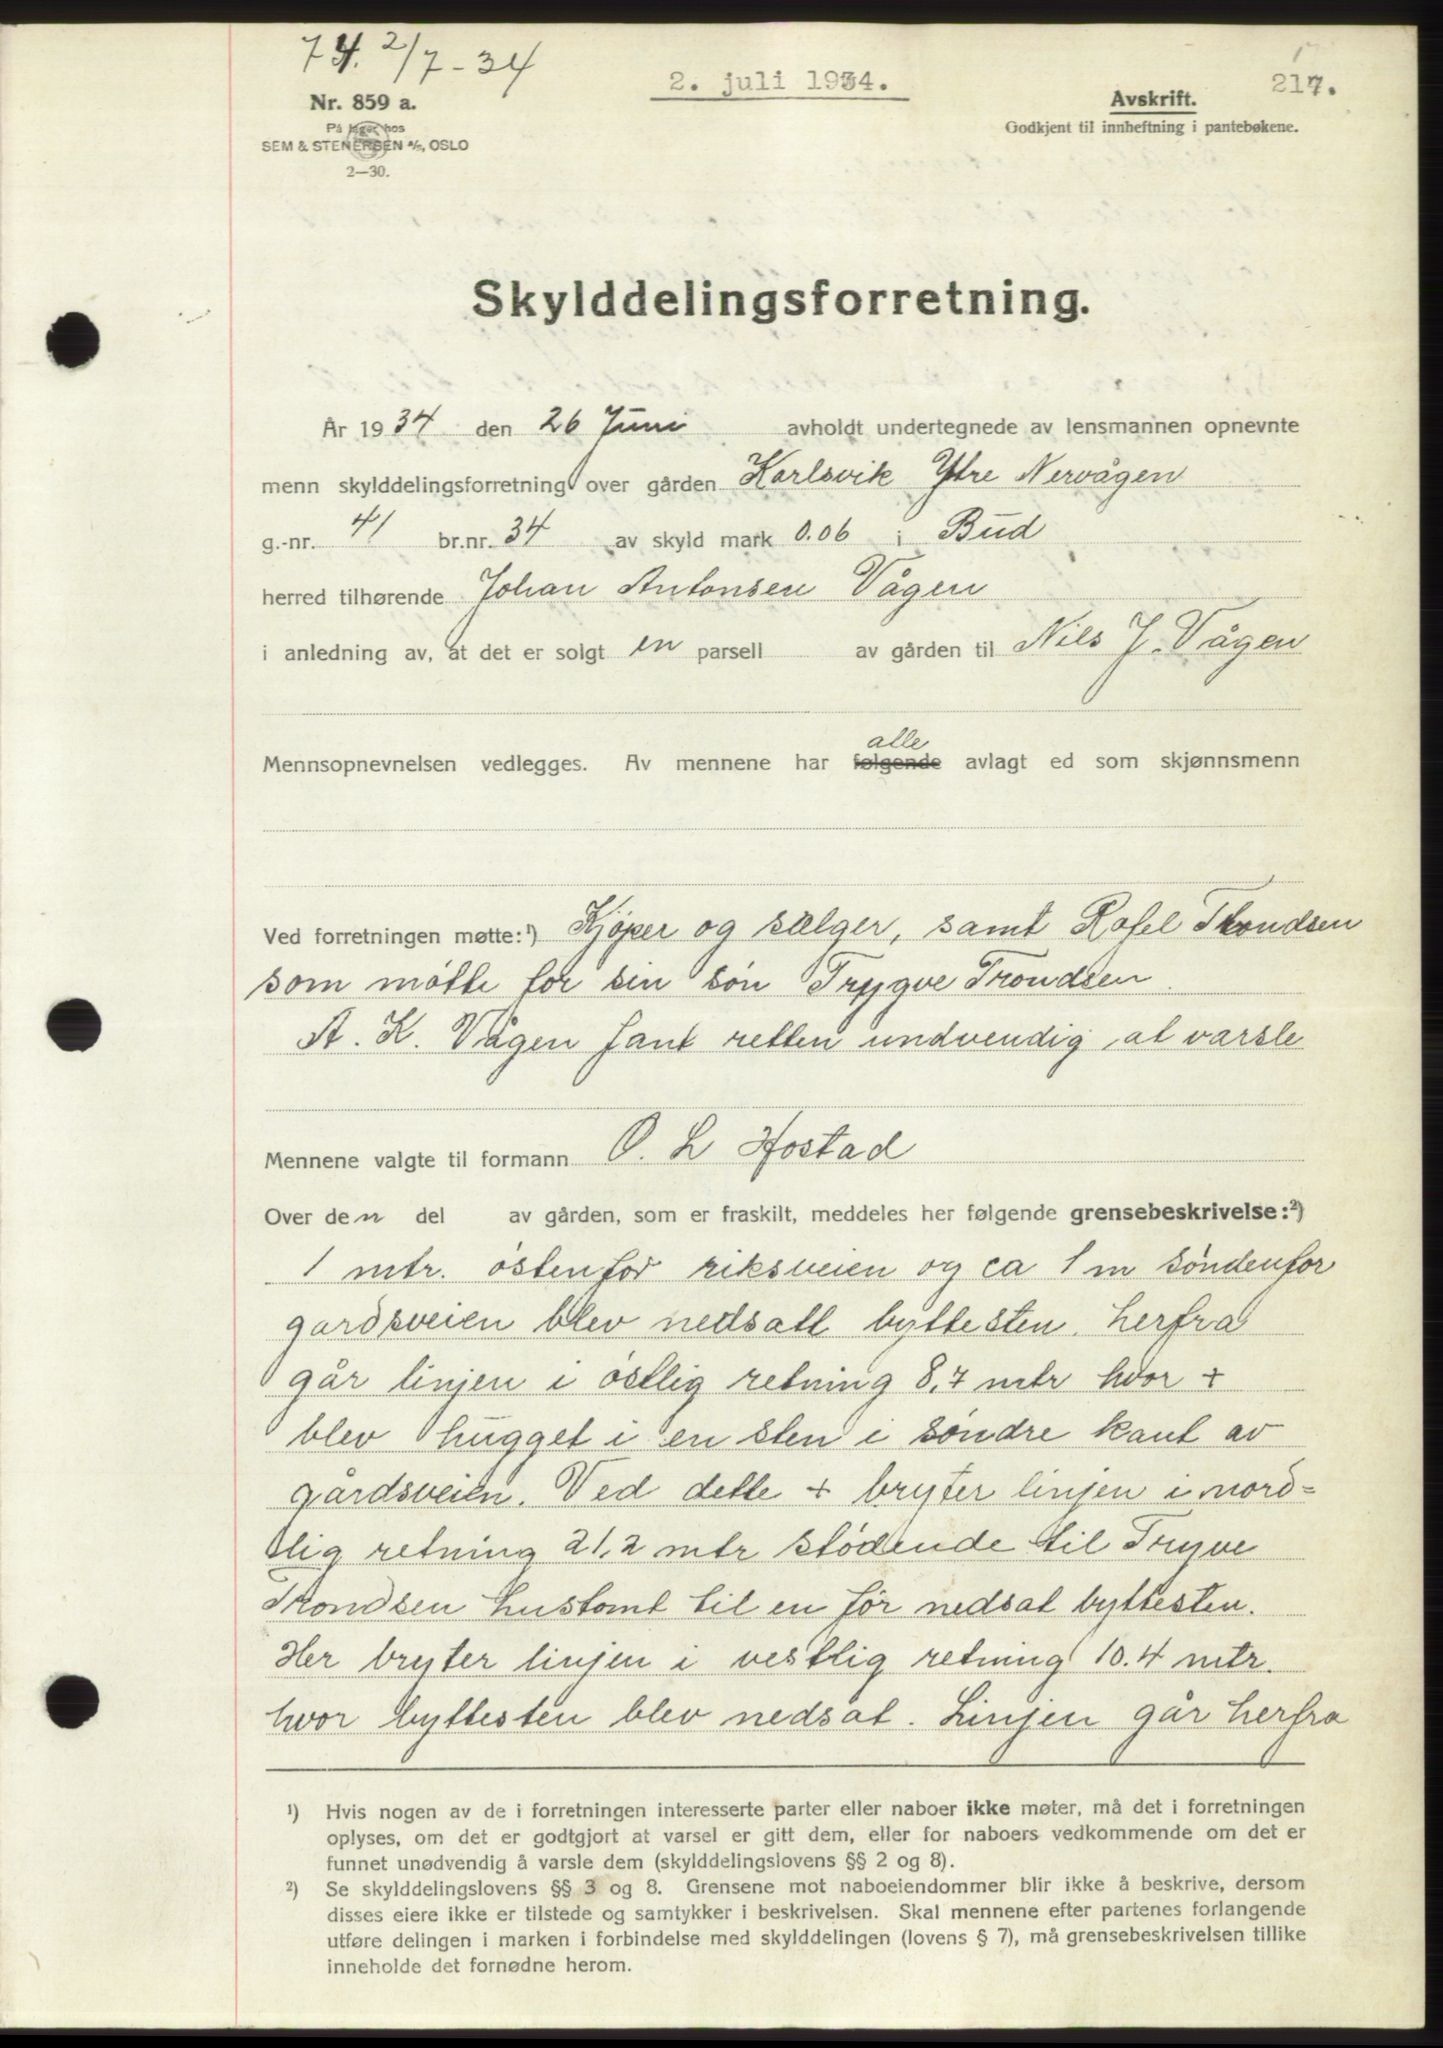 74. 2/7-34
2. juli 1934.
217.
Nr. 859 a.
På lager hos
SEM & STENERSEN A/S, OSLO
2—30.
Avskrift.
Godkjent til innheftning i pantebøkene.
Skylddelingsforretning.
År 1934 den 26 Juni avholdt undertegnede av lensmannen opnevnte
menn skylddelingsforretning over gården Karlsvik Ytre Nervågen
g.-nr. 41 br.nr. 34 av skyld mark 0.06 i Bud
herred tilhørende Johan Antonsen Vågen
i anledning av, at det er solgt en parsell av gården til Nils J. Vågen
alle
Mennsopnevnelsen vedlegges. Av mennene har følgende avlagt ed som skjønnsmenn
Ved forretningen møtte:¹) Kjøper og sælger, samt Rafel Trondsen
som møtte for sin søn Trygve Trondsen.
A. K. Vågen fant retten undvendig at varsle
Mennene valgte til formann O. L Hostad
Over den del av gården, som er fraskilt, meddeles her følgende grensebeskrivelse:²)
1 mtr. østenfor riksveien og ca 1 m søndenfor
gardsveien blev nedsatt byttesten. herfra
går linjen i østlig retning 8,7 mtr hvor +
blev hugget i en sten i søndre kant av
gårdsveien. Ved dette + bryter linjen i nord=
lig retning 21,2 mtr stødende til Tryve
Trondsen hustomt til en før nedsat byttesten.
Her bryter linjen i vestlig retning 10.4 mtr.
hvor byttesten blev nedsat. Linjen går herfra
¹) Hvis nogen av de i forretningen interesserte parter eller naboer ikke møter, må det i forretningen
oplyses, om det er godtgjort at varsel er gitt dem, eller for naboers vedkommende om det er
funnet unødvendig å varsle dem (skylddelingslovens §§ 2 og 8).
²) Se skylddelingslovens §§ 3 og 8. Grensene mot naboeiendommer blir ikke å beskrive, dersom
disses eiere ikke er tilstede og samtykker i beskrivelsen. Skal mennene efter partenes forlangende
utføre delingen i marken i forbindelse med skylddelingen (lovens § 7), må grensebeskrivelsen tillike
inneholde det fornødne herom.